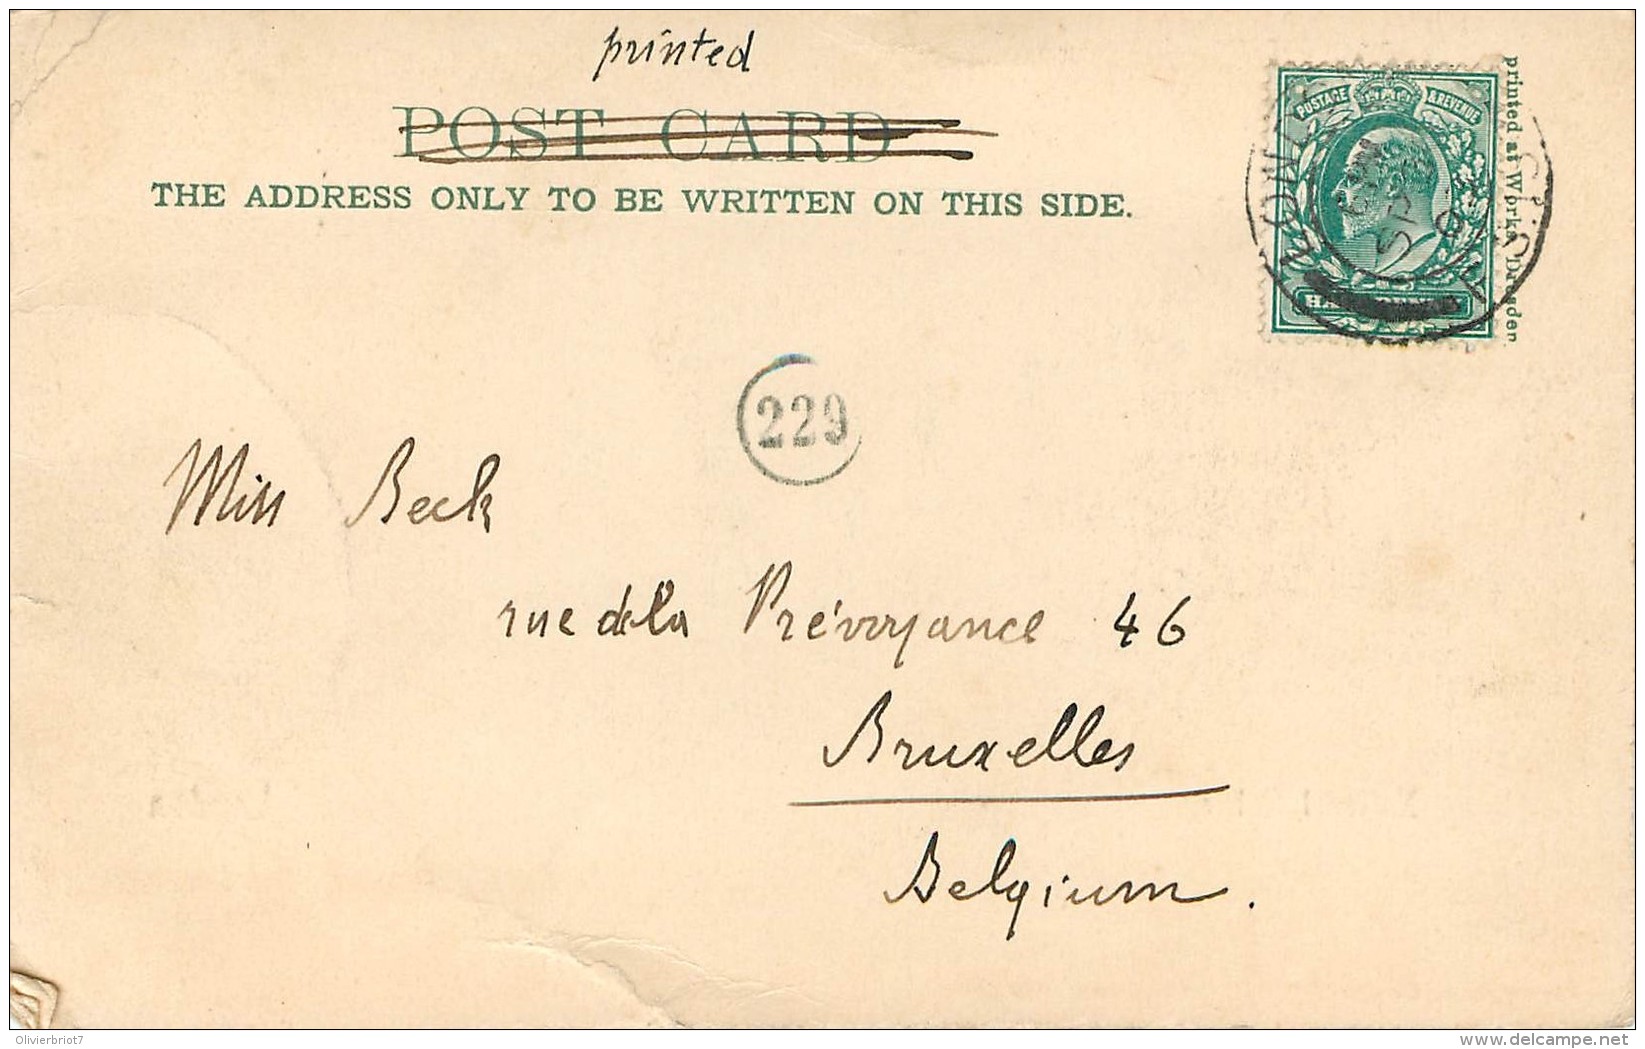 printed
POST CARD
THE ADDRESS ONLY TO BE WRITTEN ON THIS SIDE.
POSTAGE & REVENUE
printed at Works Dresden
229
Miss Beck
rue de la Prévoyance 46
Bruxelles
Belgium.
Olivierbriot7
www.delcampe.net